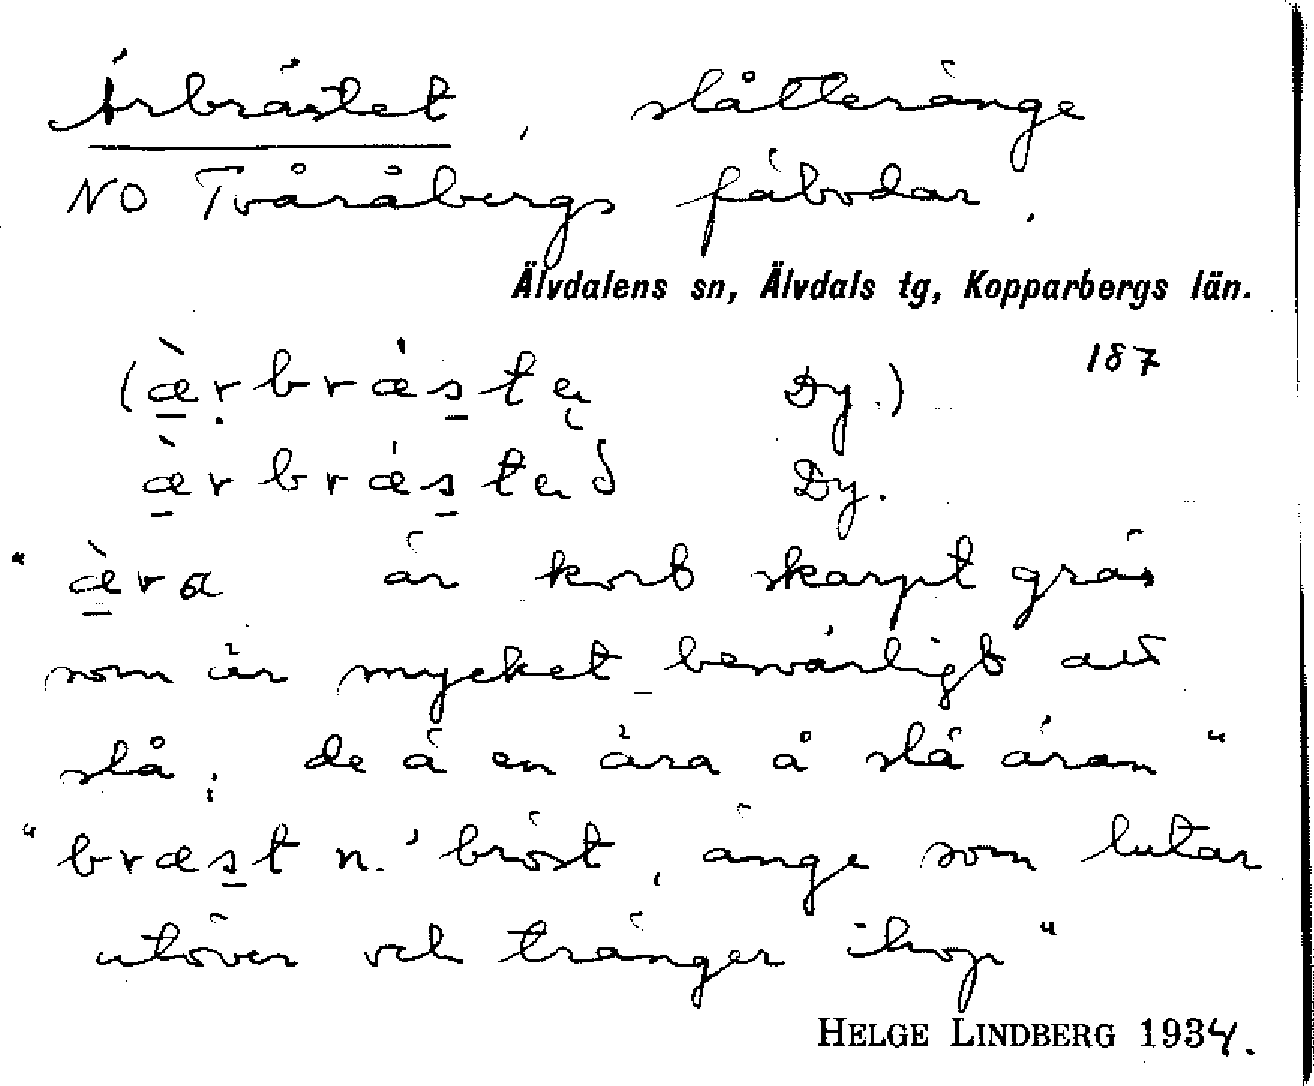 Ärbrästet, slåtteränge
NO Tvåråbergs fäbodar.
Älvdalens sn, Älvdals tg, Kopparbergs län.
187
(æ̀rbræ̍ste Dy.)
æ̀rbræ̍steð Dy.
"æ̀ra är kort skarpt gräs
som är mycket besvärligt att
slå; de ä en ära å slå äran"
"bræst n. 'bröst, änge som lutar
utöver och tränger ihop"
HELGE LINDBERG 1934.